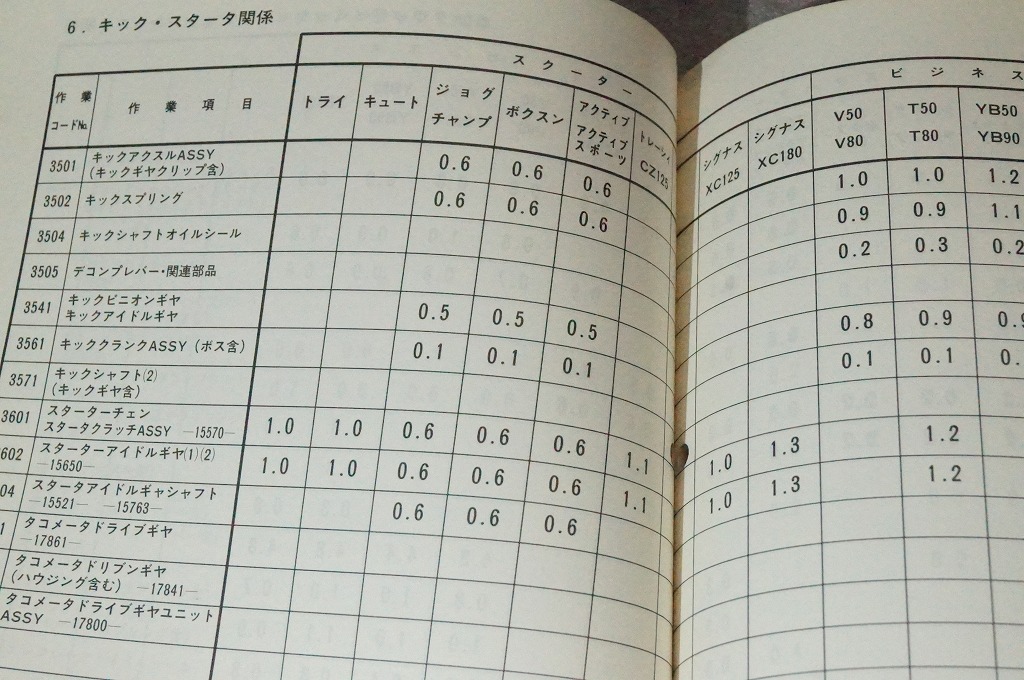 6. キック・スタータ関係
スクーター
ビジネス
作業
コードNo.
作業項目
トライ
キュート
ジョグ
チャンプ
ボクスン
アクティブ
アクティブ
スポーツ
トレーシィ
CZ125
シグナス
XC125
シグナス
XC180
V50
V80
T50
T80
YB50
YB90
3501 キックアクスルASSY
(キックギヤクリップ含) 0.6 0.6 0.6 1.0 1.0 1.2
3502 キックスプリング 0.6 0.6 0.6 0.9 0.9 1.1
3504 キックシャフトオイルシール 0.2 0.3 0.2
3505 デコンプレバー・関連部品
3541 キックピニオンギヤ
キックアイドルギヤ 0.5 0.5 0.5 0.8 0.9 0.9
3561 キッククランクASSY (ボス含) 0.1 0.1 0.1 0.1 0.1 0.
3571 キックシャフト(2)
(キックギヤ含)
3601 スターターチェン
スタータクラッチASSY —15570— 1.0 1.0 0.6 0.6 0.6 1.1 1.0 1.3 1.2
602 スターターアイドルギヤ(1)(2)
—15650— 1.0 1.0 0.6 0.6 0.6 1.1 1.0 1.3 1.2
04 スタータアイドルギャシャフト
—15521— —15763— 0.6 0.6 0.6
1 タコメータドライブギヤ
—17861—
タコメータドリブンギヤ
(ハウジング含む) —17841—
タコメータドライブギヤユニット
ASSY —17800—